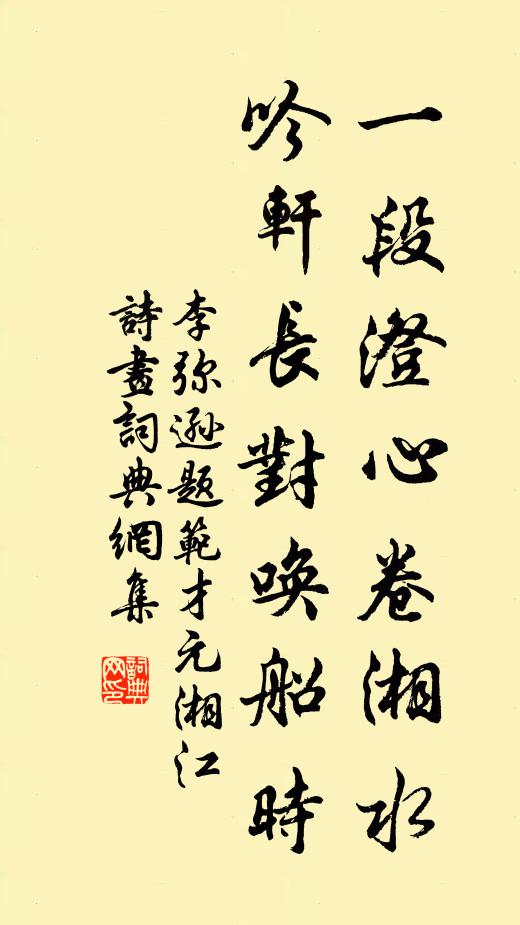 一段澄心卷湘水
吟軒長對唤船時
李弥遜题範才元湘江
詩畫詞典網集
詞典网印